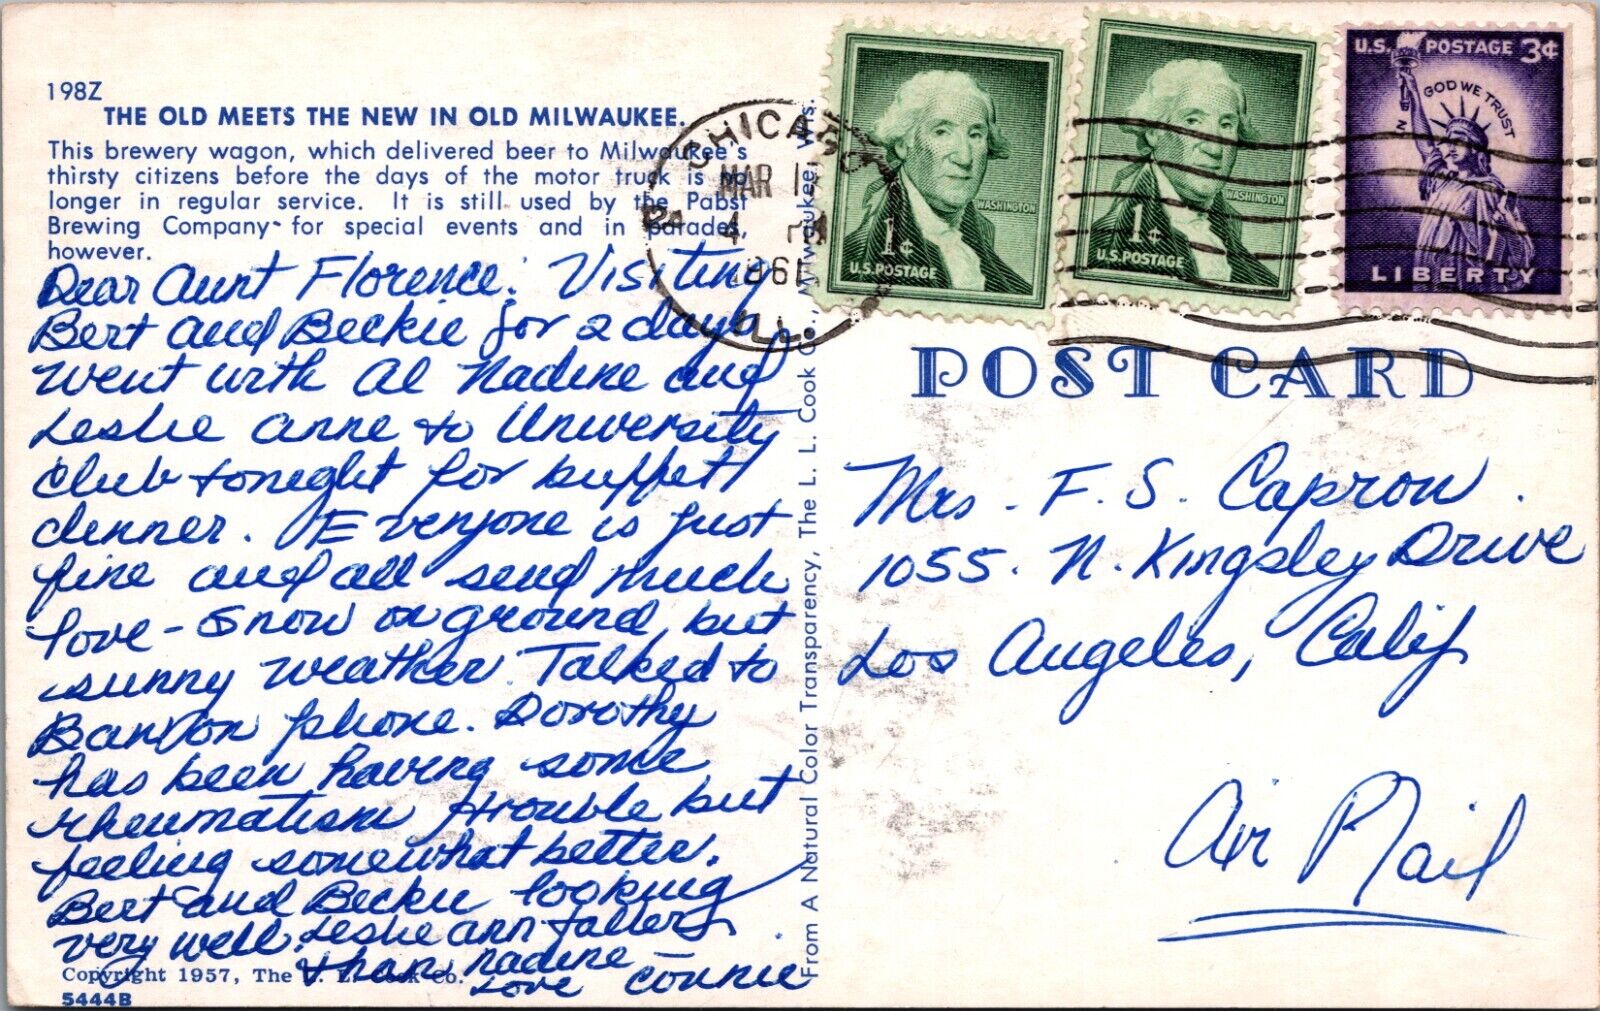 198Z
THE OLD MEETS THE NEW IN OLD MILWAUKEE.
This brewery wagon, which delivered beer to Milwaukee's
thirsty citizens before the days of the motor truck is no
longer in regular service. It is still used by the Pabst
Brewing Company for special events and in parades,
however.
Dear Aunt Florence: Visiting
Bert and Beckie for 2 days
went with Al Nadine and
Leslie Anne to University
Club tonight for buffett
dinner. Everyone is just
fine and all send much
love - Snow on ground, but
sunny weather. Talked to
on phone. Dorothy
has been having some
rheumatism trouble but
feeling somewhat better.
Bert and Beckie looking
very well. Leslie Ann taller
than Nadine -
Love Connie
Copyright 1957, The L. L. Cook Co.
5444B
From A Natural Color Transparency, The L. L. Cook Co., Milwaukee, Wis.
CHICAGO
MAR
4 PM
1961
ILL.
WASHINGTON
1¢
U.S. POSTAGE
WASHINGTON
1¢
U.S. POSTAGE
U.S. POSTAGE 3¢
IN GOD WE TRUST
LIBERTY
POST CARD
Mrs. F. S. Capron.
1055. N. Kingsley Drive
Los Angeles, Calif
Air Mail